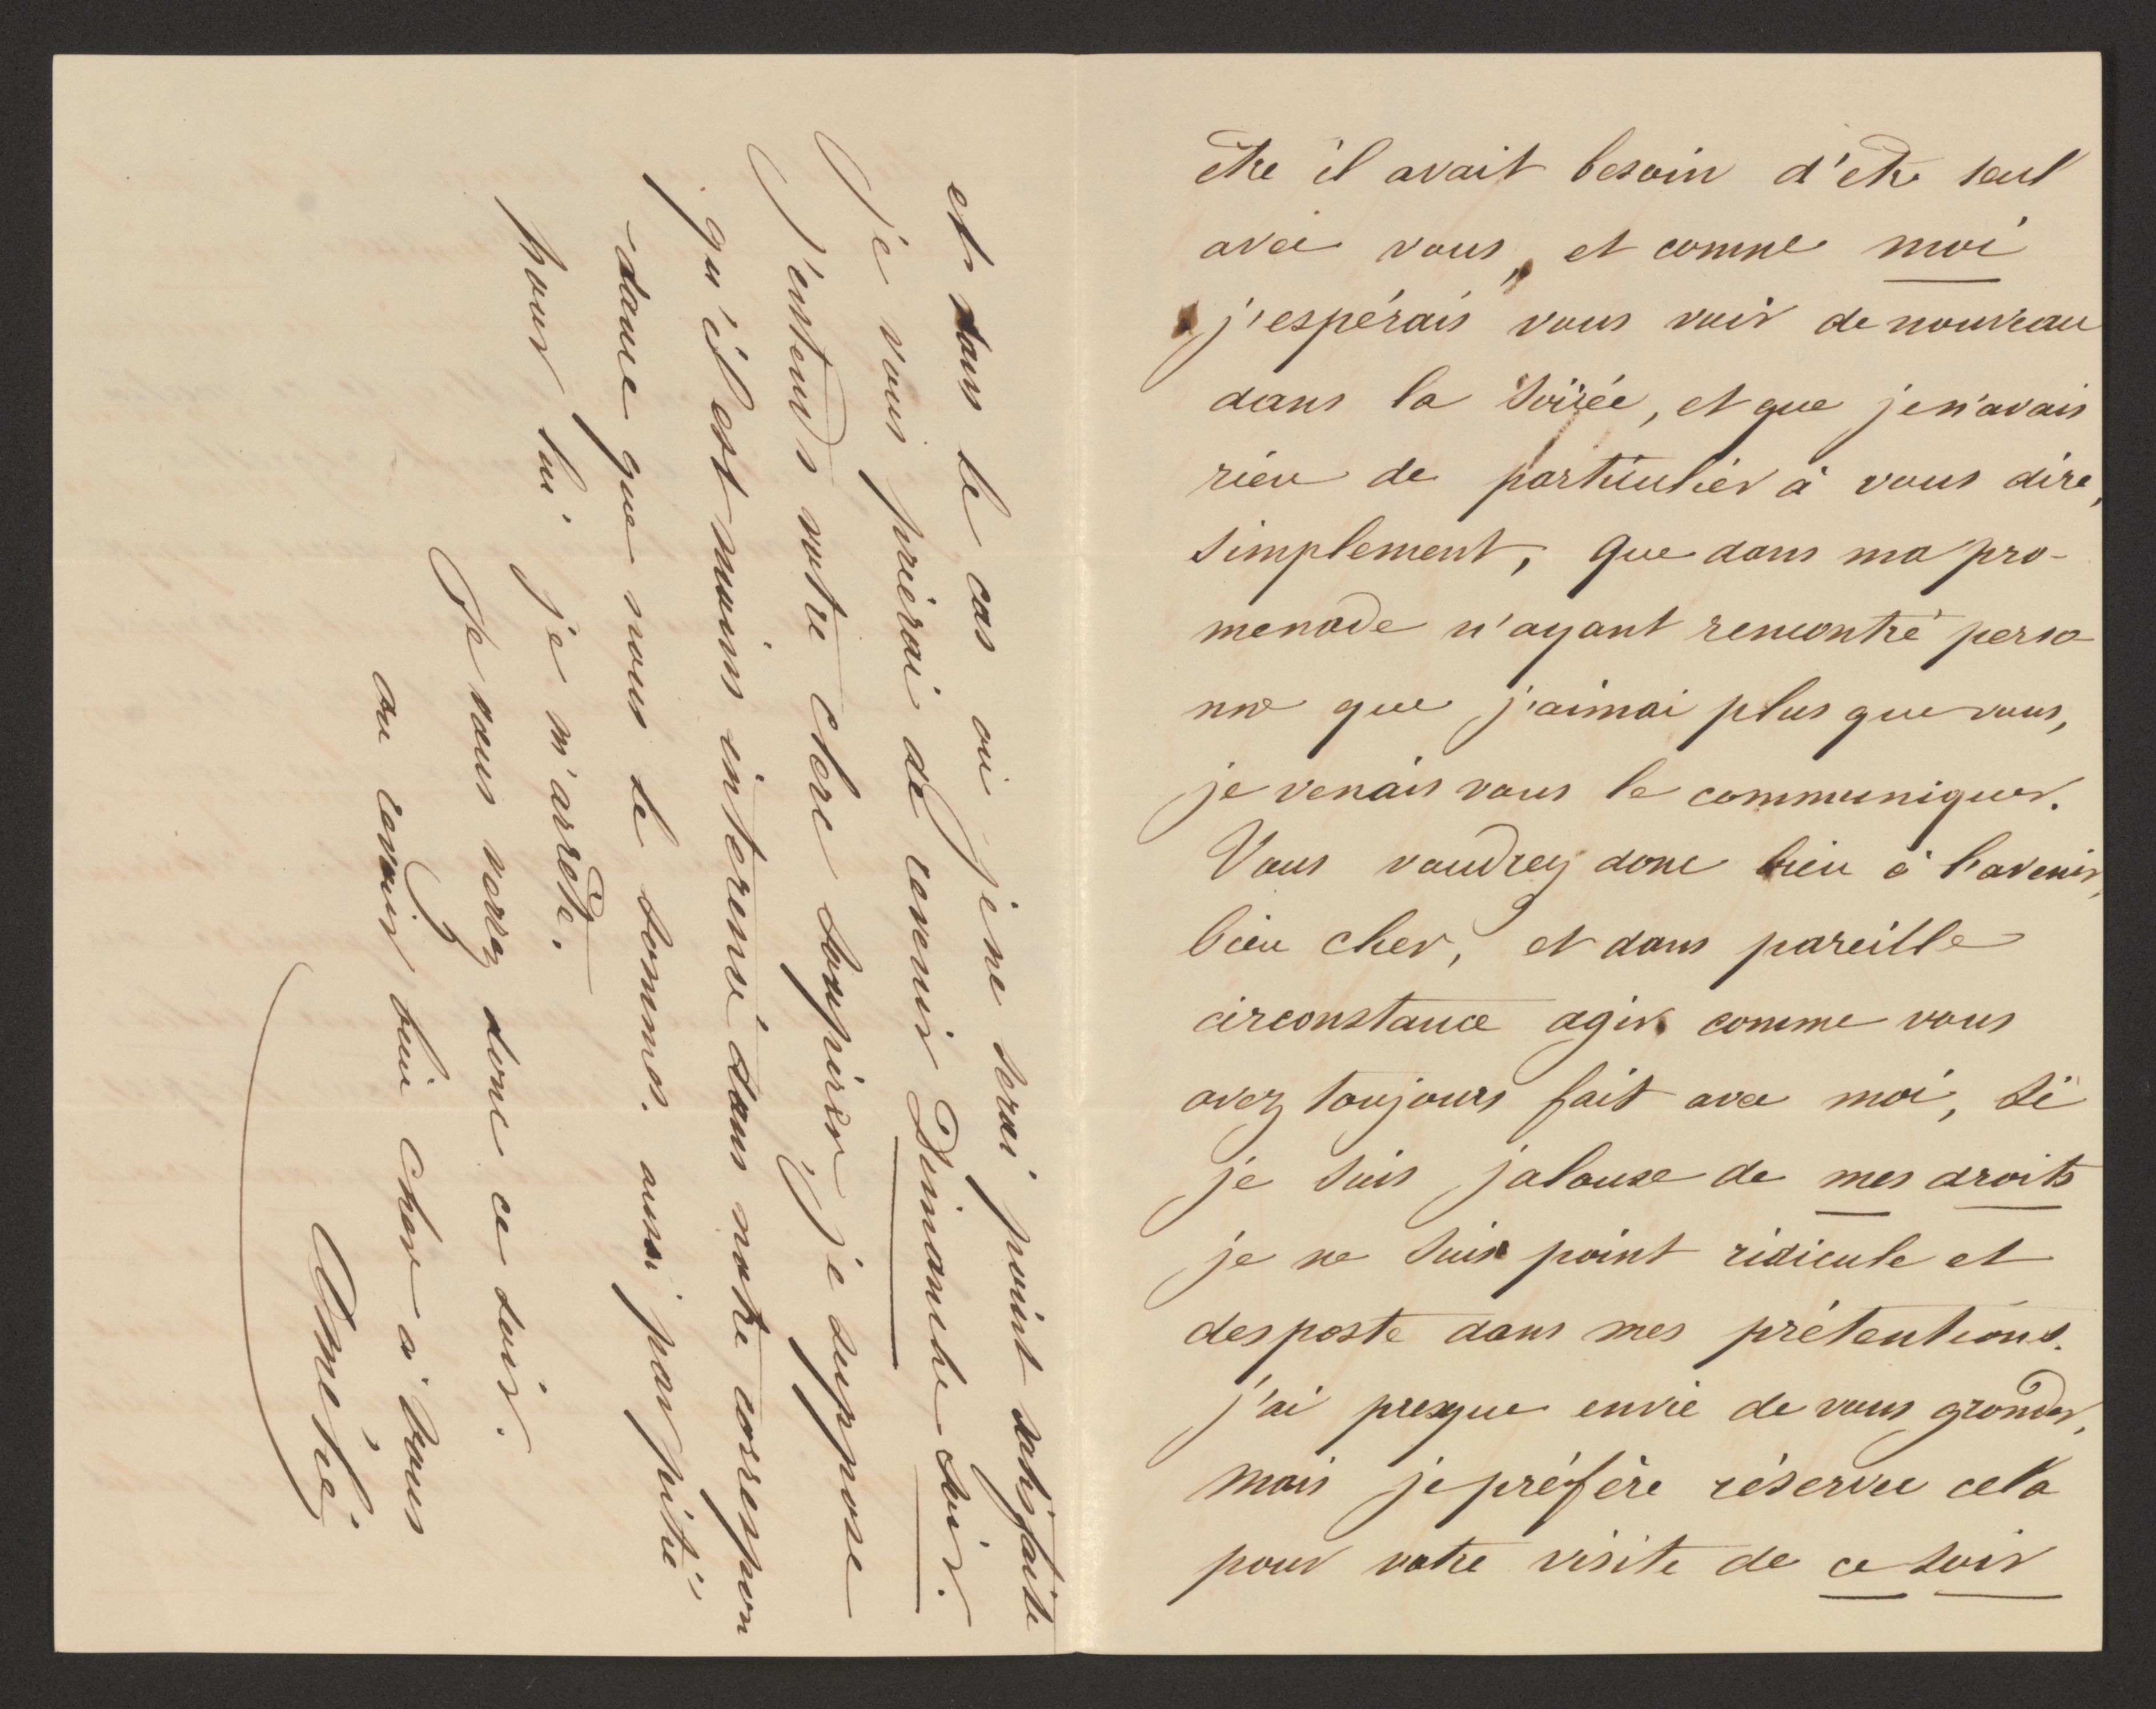 être il avait besoin d'être seul
avec vous, et comme moi
j'espérais vous voir de nouveau
dans la soirée, et que je n'avais
rien de particulier à vous dire,
simplement, que dans ma pro-
menade n'ayant rencontré perso
nne que j'aimai plus que vous,
je venais vous le communiquer.
Vous voudrez donc bien à l'avenir,
bien cher, et dans pareille
circonstance agir comme vous
avez toujours fait avec moi, si
je suis jalouse de mes droits
je ne suis point ridicule et
desposte dans mes prétentions.
j'ai presque envie de vous gronder,
mais je préfère réserver cela
pour votre visite de ce soir
et dans le cas où je ne serai point satisfaite
je vous prierai de revenir Dimanche soir.
J'entends votre chere soupirer je suppose
qu'il est moins interené dans notre correspon
-dance que nous le sommes. aussi par pitié
pour lui je m'arrête.
Je vous verrez donc ce soir.
au revoir bien cher à vous
Amélie